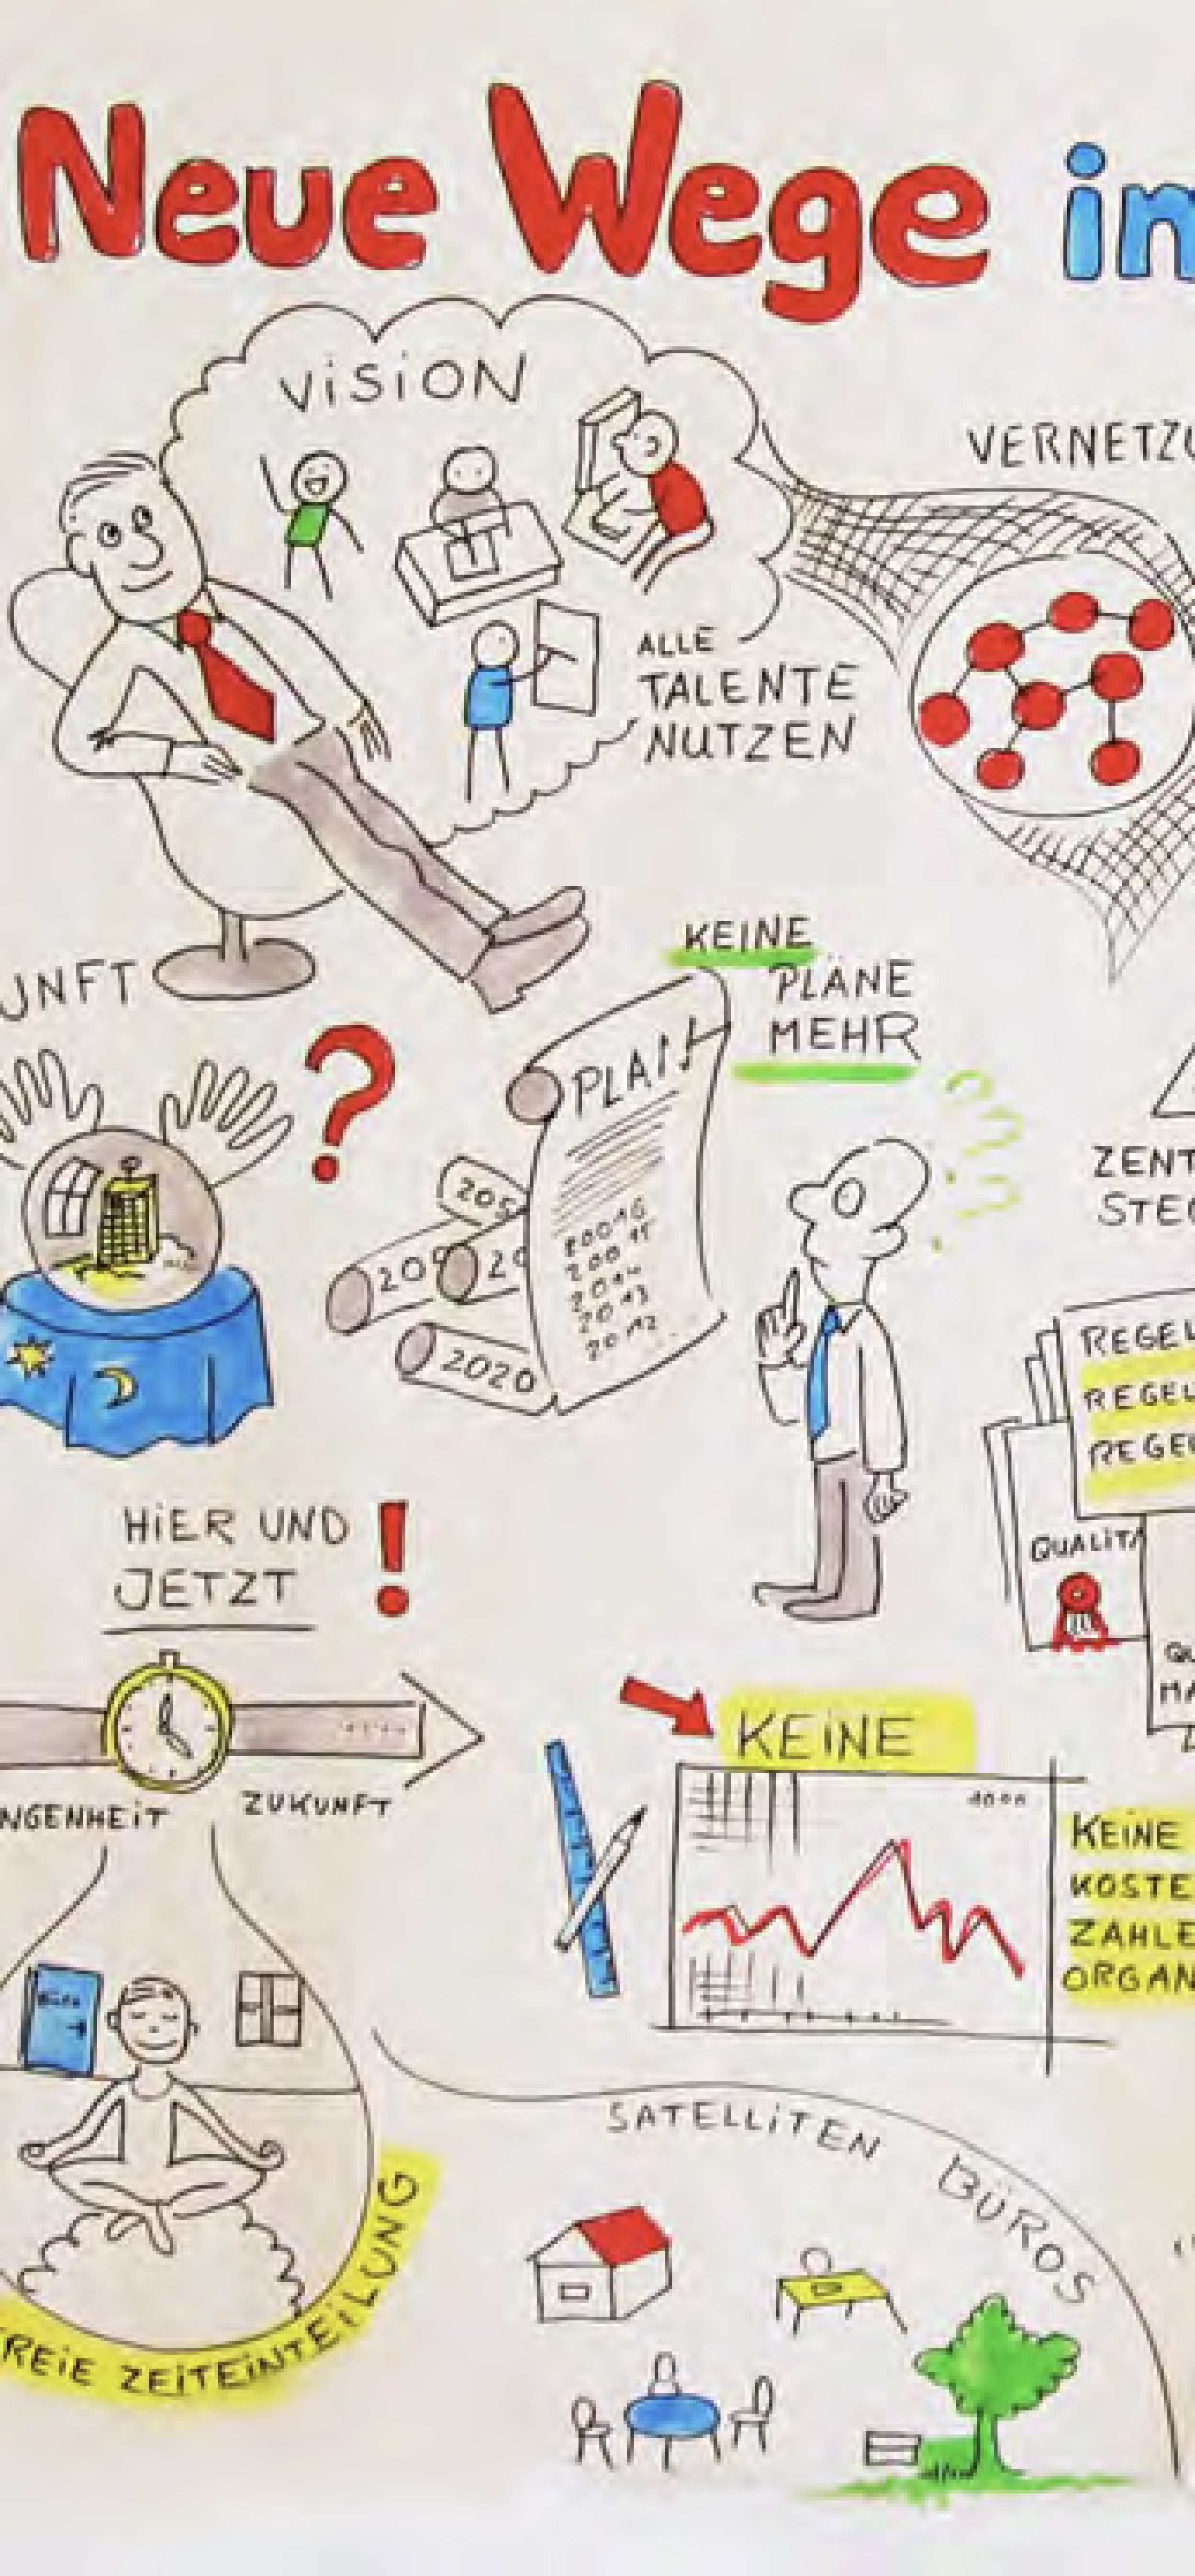 Neue Wege in
VISION
VERNETZU
ALLE
TALENTE
NUTZEN
KEINE
PLÄNE
MEHR
UNFT
?
PLAN!
205
209
20
2020
2014
2013
2012
ZENT
STEU
REGEL
REGEL
REGEL
QUALITÄ
QU
MA
HIER UND
JETZT !
NGENHEIT
ZUKUNFT
KEINE
KEINE
KOSTE
ZAHLE
ORGAN
Büro
REIE ZEITEINTEILUNG
SATELLITEN BÜROS